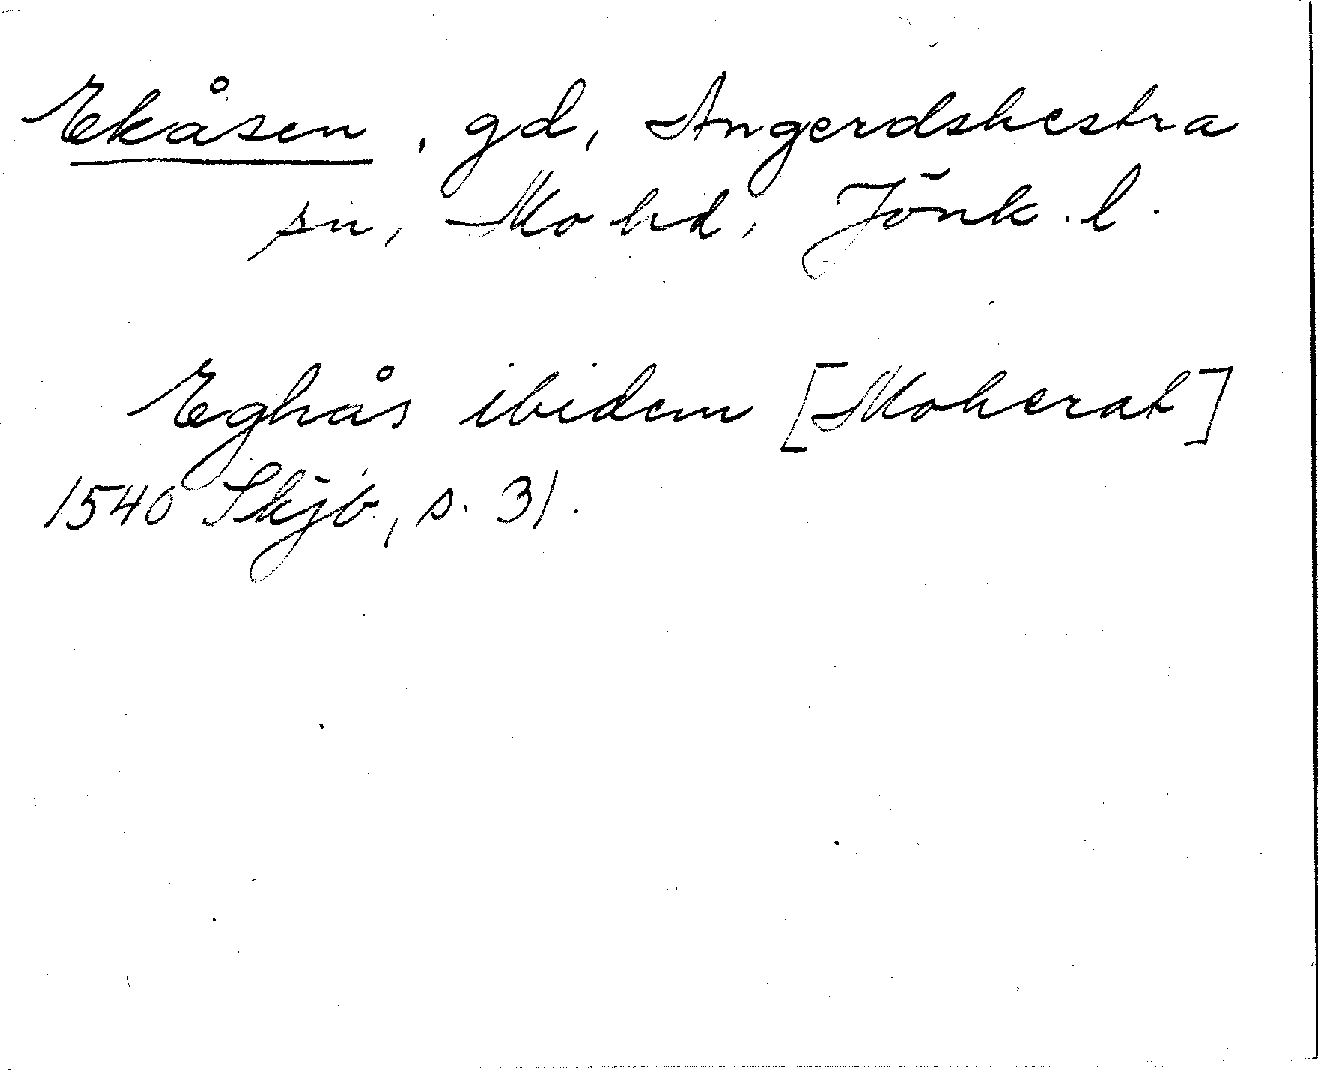 Ekåsen, gd, Angerdshestra
sn, Mo hd, Jönk. l.
Eghås ibidem [Moherat]
1540 Skjb, s. 31.